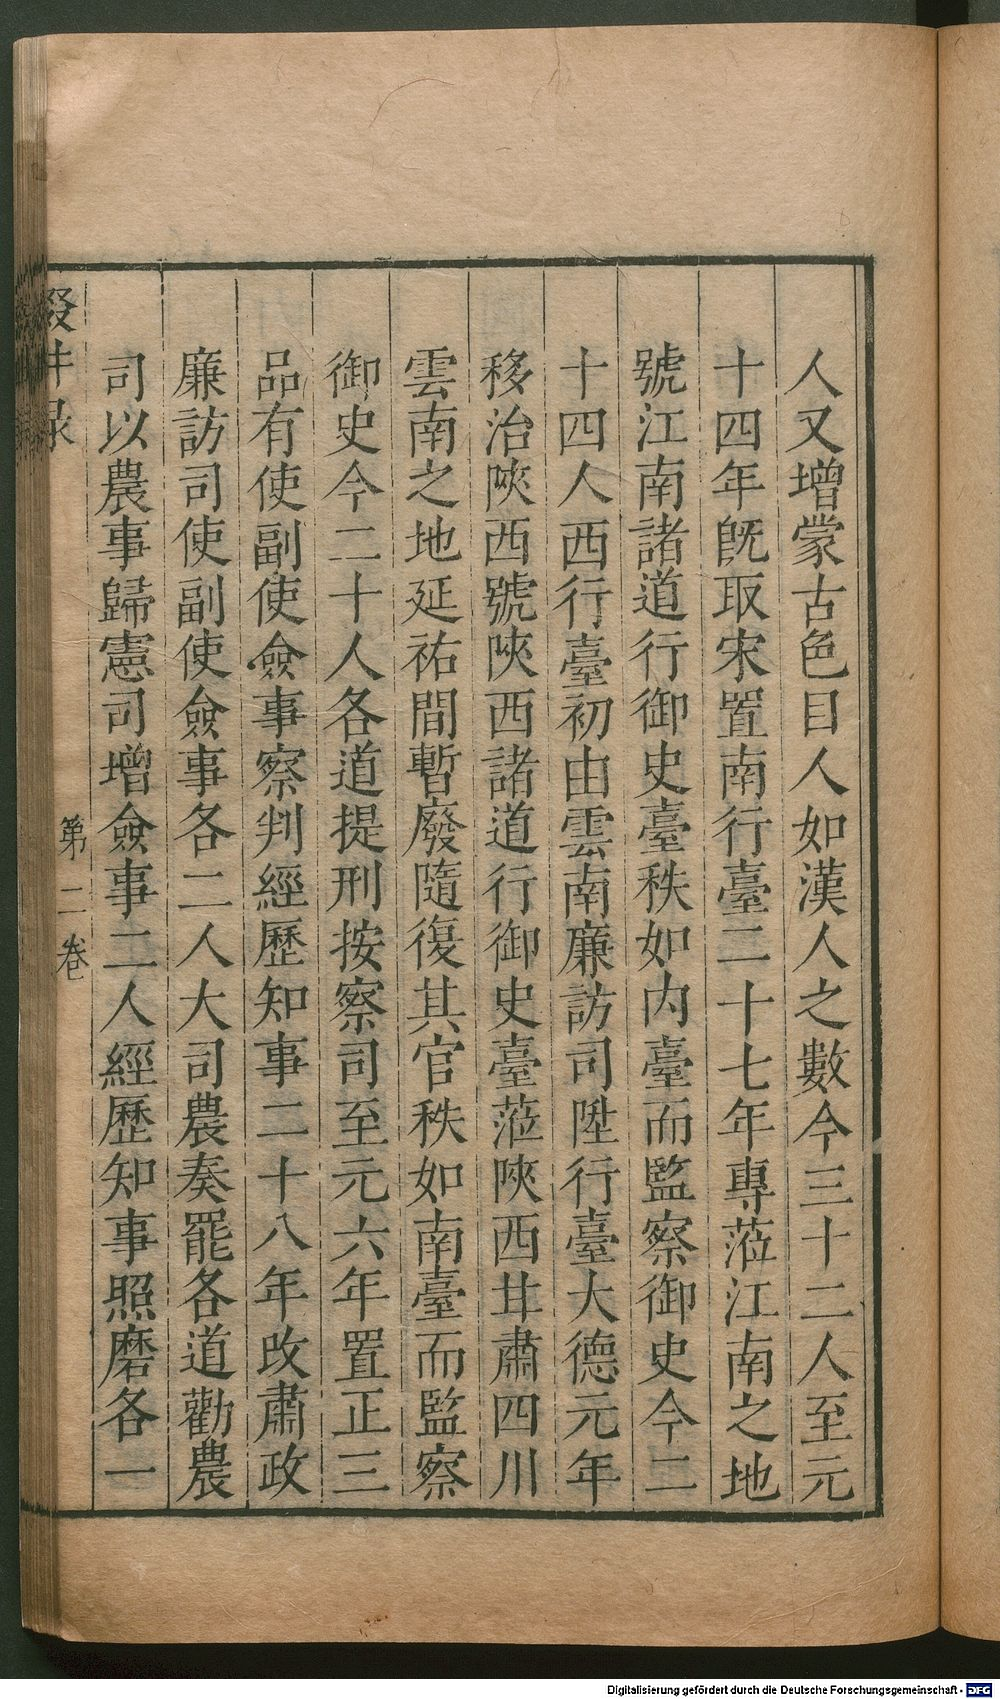 人又增蒙古色目人如漢人之數今三十二人至元
十四年旣取宋置南行臺二十七年專蒞江南之地
號江南諸道行御史臺秩如内臺而監察御史今二
十四人西行臺初由雲南廉訪司陞行臺大德元年
移治陜西號陜西諸道行御史臺蒞陜西甘肅四川
雲南之地延祐間暫廢隨復其官秩如南臺而監察
御史今二十人各道提刑按察司至元六年置正三
品有使副使僉事察判經歷知事二十八年改肅政
廉訪司使副使僉事各二人大司農奏罷各道勸農
司以農事歸憲司增僉事二人經歷知事照磨各一
第二卷
Digitalisierung gefördert durch die Deutsche Forschungsgemeinschaft - DFG